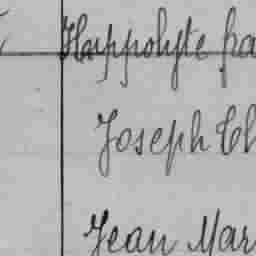 Happolyte fra
Joseph Ch
Jean Mar